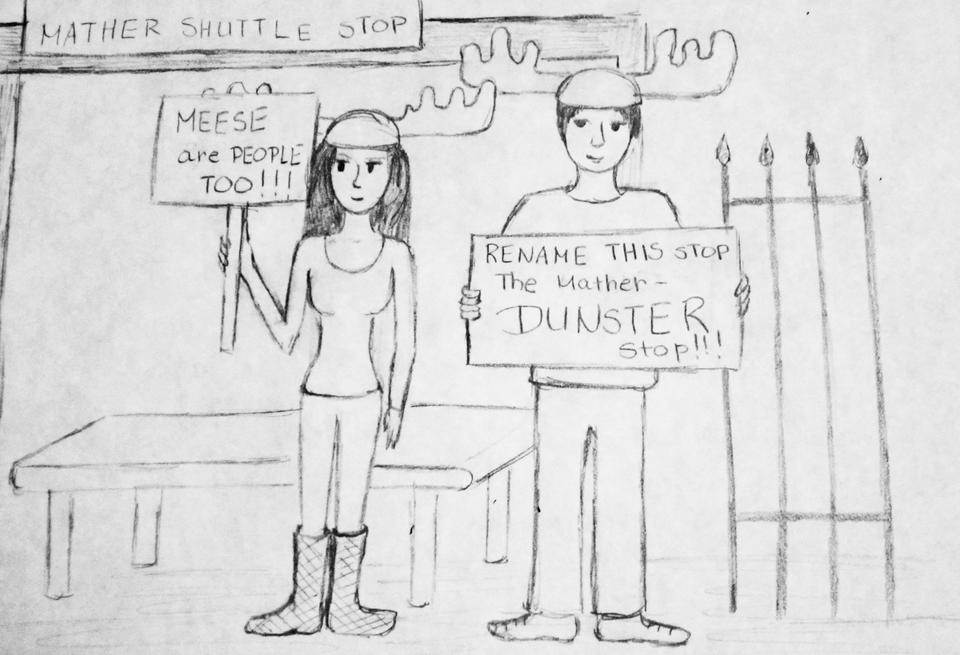 MATHER SHUTTLE STOP
MEESE
are PEOPLE
TOO!!!
RENAME THIS STOP
The Mather-
DUNSTER
Stop!!!